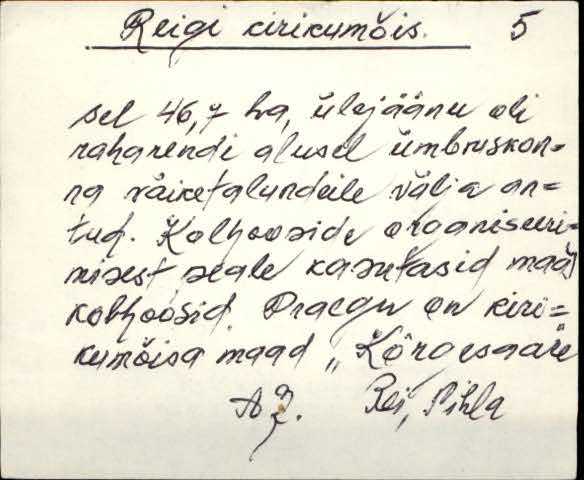 Reigi kirikumõis. 5
sel 46,7 ha, ülejäänu oli
raharendi alusel ümbruskon=
na väiketalundeile välja an=
tud. Kolhooside organiseeri=
misest peale kasutasid maad
kolhoosid. Praegu on kiri=
kumõisa maad „Kõrgesaare"
Rei, Pihla